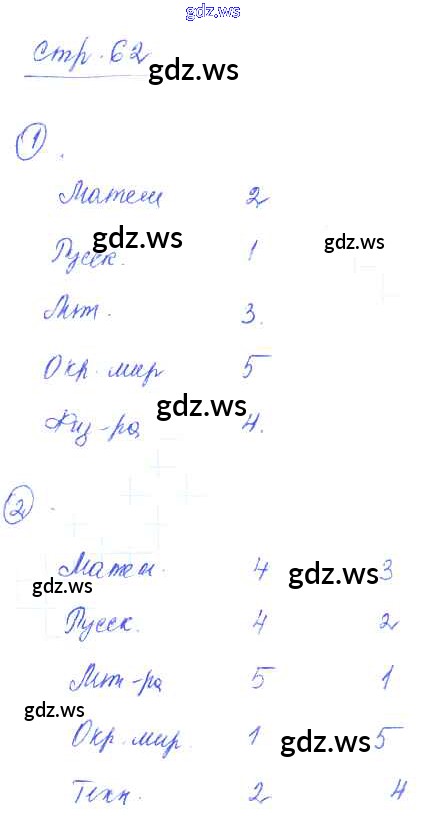 gdz.ws
стр. 62
gdz.ws
1.
Матем 2
gdz.ws
Русск. 1 gdz.ws
Лит. 3.
Окр. мир 5
gdz.ws
Физ-ра 4.
2.
Матем. 4 gdz.ws 3
gdz.ws
Русск. 4 2
Лит-ра 5 1
gdz.ws
Окр. мир. 1 gdz.ws 5
Техн. 2 4